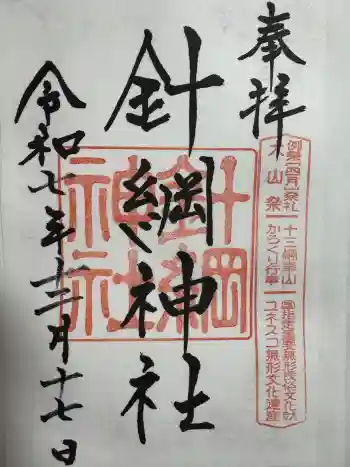 奉拝
例祭(四月)祭礼
犬山祭
十三輌車山
からくり行事
国指定重要無形民俗文化財
ユネスコ無形文化遺産
針綱神社
針綱神社
令和七年十二月十七日